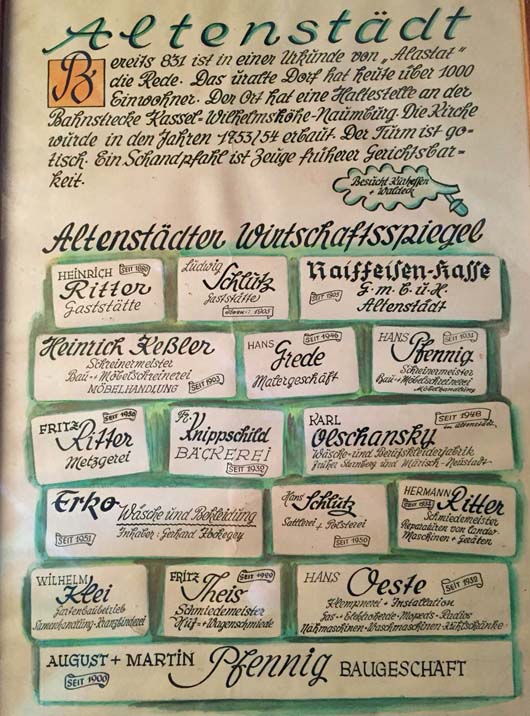 Altenstädt
Bereits 831 ist in einer Urkunde von „Alastat"
die Rede. Das uralte Dorf hat heute über 1000
Einwohner. Der Ort hat eine Haltestelle an der
Bahnstrecke Kassel-Wilhelmshöhe-Naumburg. Die Kirche
wurde in den Jahren 1753/54 erbaut. Der Turm ist go-
tisch. Ein Schandpfahl ist Zeuge früherer Gerichtsbar-
keit.
Besucht Kurhessen
+ Waldeck
Altenstädter Wirtschaftsspiegel
HEINRICH SEIT 1880
Ritter
Gaststätte
Ludwig
Schlutz
Gaststätte
1905
Raiffeisen-Kasse
G.m.b.u.H.
SEIT 1905
Altenstädt
Heinrich Keßler
Schreinermeister
Bau- + Möbelschreinerei
MÖBELHANDLUNG SEIT 1903
SEIT 1946
HANS Grede
Malergeschäft
HANS SEIT 1931
Pfennig
Schreinermeister
Bau- + Möbelschreinerei
Möbelhandlung
FRITZ SEIT 1950
Ritter
Metzgerei
Fr. Knippschild
BÄCKEREI
SEIT 1932
KARL SEIT 1948
Olschansky
Wäsche- und Berufskleiderfabrik
früher Sternberg und Mährisch-Neustadt
Erko Wäsche und Bekleidung
SEIT 1951 Inhaber: Gerhard
Hans Schlutz
Sattlerei + Polsterei
SEIT 1950
HERMANN
Ritter
Schmiedemeister
Reparaturen von Landw.
Maschinen + Geräten
WILHELM
Klei
Gartenbaubetrieb
Samenhandlung-Kranzbinderei
FRITZ SEIT 1929
Theis
Schmiedemeister
Huf- + Wagenschmiede
HANS Oeste SEIT 1932
Klempnerei + Installation
Gas- + Elektroherde-Mopeds-Radios
Nähmaschinen-Waschmaschinen-Kühlschränke
AUGUST + MARTIN Pfennig BAUGESCHÄFT
SEIT 1900